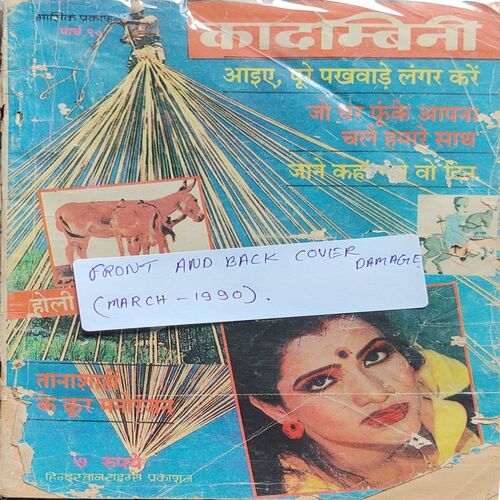 मासिक प्रकाशन
मार्च ९०
कादम्बिनी
आइए, पूरे पखवाड़े लंगर करें
जो घर फूंके आपना
चले हमारे साथ
जाने कहाँ वो दिन
FRONT AND BACK COVER
DAMAGE
(MARCH - 1990).
होली
तानाशाहों
के क्रूर मनोरंजन
७ रुपये
हिन्दुस्तान टाइम्स प्रकाशन